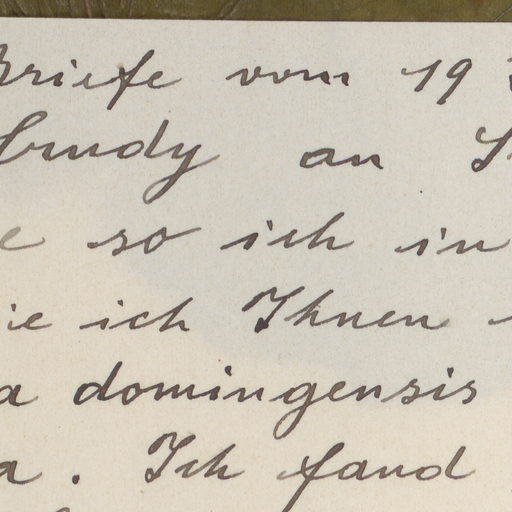 Briefe vom 19
Grudy an
so ich in
ie ich Ihnen
a domingensis
a. Ich fand